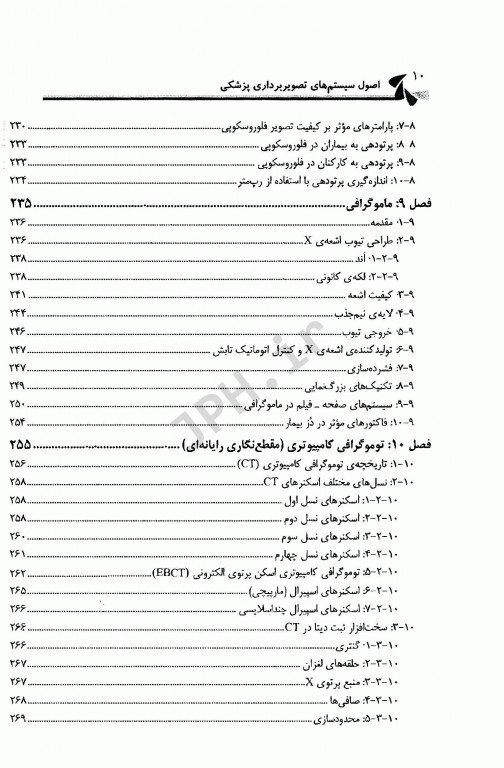 ۱۰
اصول سیستم‌های تصویربرداری پزشکی
۸-۷: پارامترهای مؤثر بر کیفیت تصویر فلوروسکوپی ۲۳۰
۸ ۸: پرتودهی به بیماران در فلوروسکوپی ۲۳۳
۸-۹: پرتودهی به کارکنان در فلوروسکوپی ۲۳۳
۸-۱۰: اندازه‌گیری پرتودهی با استفاده از رپ‌متر ۲۳۴
فصل ۹: ماموگرافی ۲۳۵
۹-۱: مقدمه ۲۳۶
۹-۲: طراحی تیوب اشعه‌ی X ۲۳۶
۹-۲-۱: آند ۲۳۸
۹-۲-۲: لکه‌ی کانونی ۲۳۸
۹-۳: کیفیت اشعه ۲۴۱
۹-۴: لایه‌ی نیم‌جذب ۲۴۴
۹-۵: خروجی تیوب ۲۴۶
۹-۶: تولیدکننده‌ی اشعه‌ی X و کنترل اتوماتیک تابش ۲۴۷
۹-۷: فشرده‌سازی ۲۴۷
۹-۸: تکنیک‌های بزرگ‌نمایی ۲۴۹
۹-۹: سیستم‌های صفحه ـ فیلم در ماموگرافی ۲۵۰
۹-۱۰: فاکتورهای مؤثر در دُز بیمار ۲۵۴
فصل ۱۰: توموگرافی کامپیوتری (مقطع‌نگاری رایانه‌ای) ۲۵۵
۱۰-۱: تاریخچه‌ی توموگرافی کامپیوتری (CT) ۲۵۶
۱۰-۲: نسل‌های مختلف اسکنرهای CT ۲۵۸
۱۰-۲-۱: اسکنرهای نسل اول ۲۵۸
۱۰-۲-۲: اسکنرهای نسل دوم ۲۵۸
۱۰-۲-۳: اسکنرهای نسل سوم ۲۶۰
۱۰-۲-۴: اسکنرهای نسل چهارم ۲۶۱
۱۰-۲-۵: توموگرافی کامپیوتری اسکن پرتوی الکترونی (EBCT) ۲۶۲
۱۰-۲-۶: اسکنرهای اسپیرال (مارپیچی) ۲۶۵
۱۰-۲-۷: اسکنرهای اسپیرال چنداسلایسی ۲۶۶
۱۰-۳: سخت‌افزار ثبت دیتا در CT ۲۶۶
۱۰-۳-۱: گنتری ۲۶۶
۱۰-۳-۲: حلقه‌های لغزان ۲۶۷
۱۰-۳-۳: منبع پرتوی X ۲۶۷
۱۰-۲-۴: صافی‌ها ۲۶۸
۱۰-۳-۵: محدودسازی ۲۶۹
JPH.ir